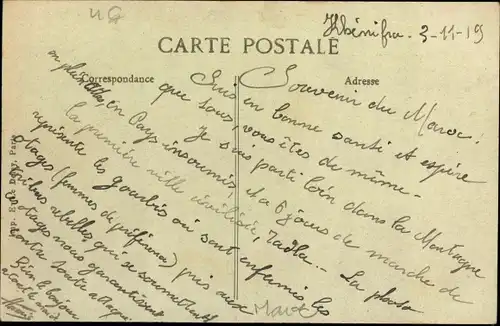 Khénifra 3-11-19
CARTE POSTALE
Correspondance
Adresse
Souvenir du Maroc.
Suis en bonne santé et espère
que tous, vous êtes de même.
Je suis parti loin dans la Montagne
en plein Atlas en Pays insoumis, et a 6 jours de marche de
la première ville civilisée, Tadla. La photo
représente les gourbis où sont enfermés les
otages (femmes de préférence) pris aux
tribus rebelles, qui se soumettent
ces otages nous garantissent
contre toute attaque
Bien le bonjour
a toute
Imp. E. Paris